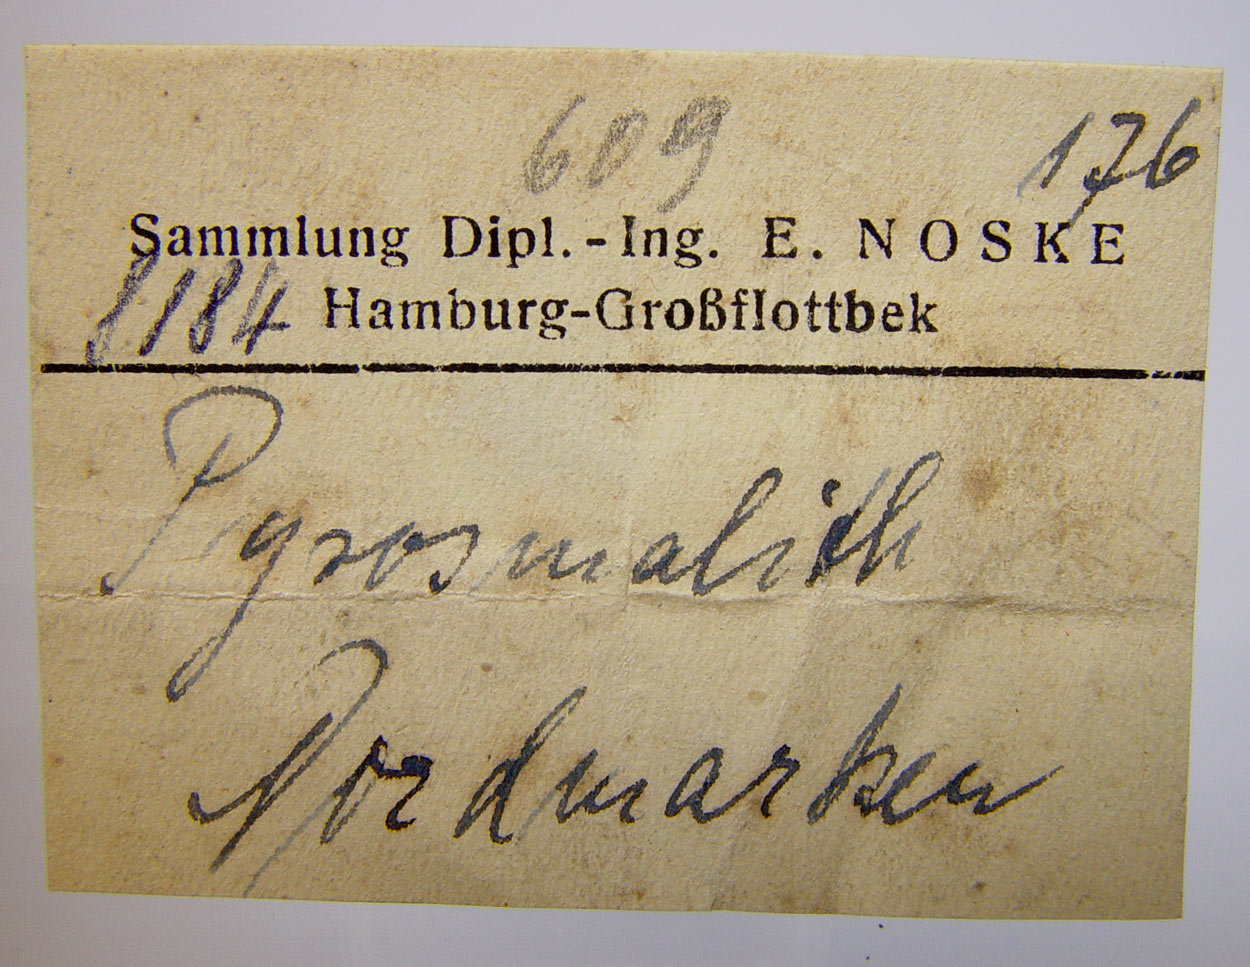 609
176
Sammlung Dipl.-Ing. E. NOSKE
8184 Hamburg-Großflottbek
Pyrosmalith
Nordmarken